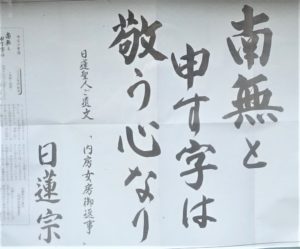 南無と
申す字は
敬う心なり
日蓮聖人ご遺文
「内房女房御返事」
日蓮宗
南無と